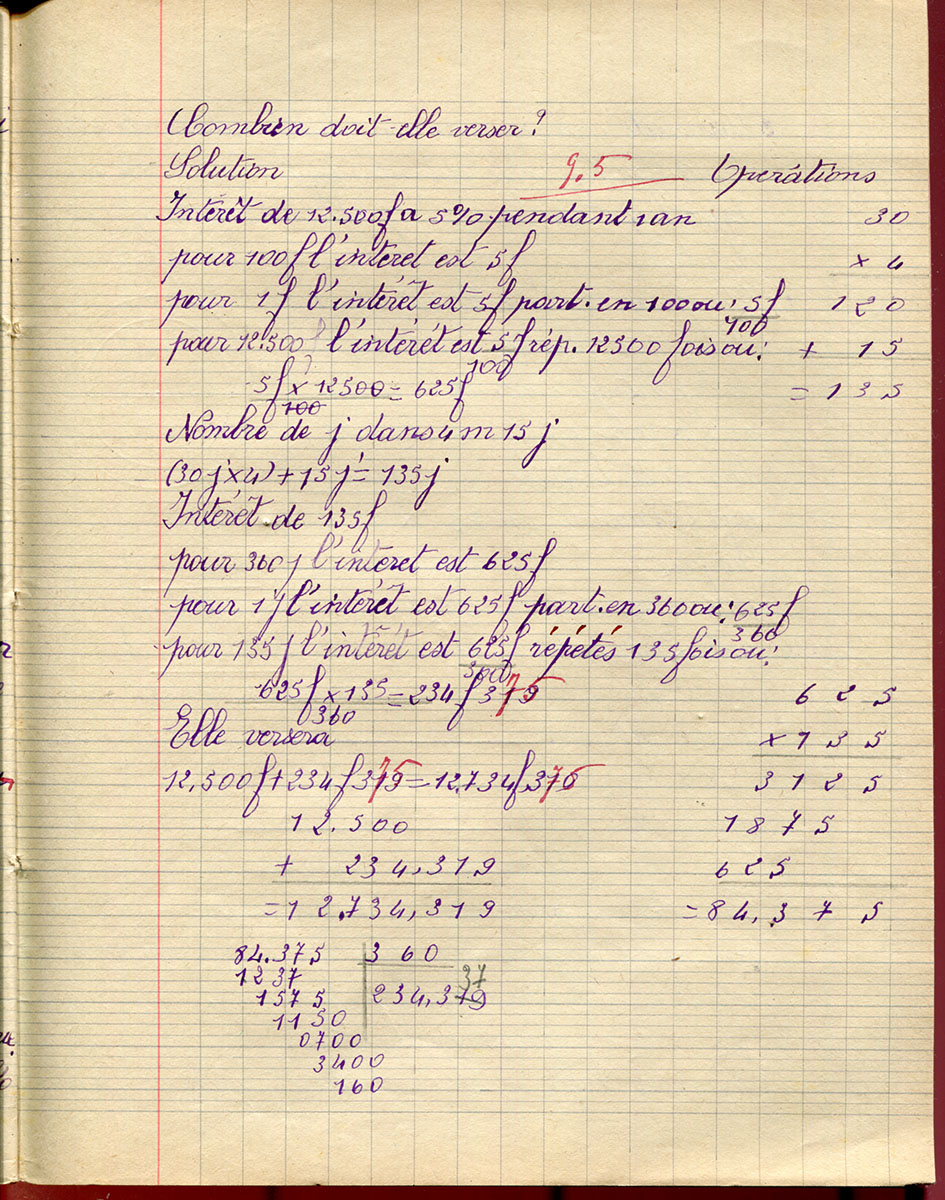 Combien doit elle verser?
Solution 9.5 Opérations
Intérêt de 12.500f a 5% pendant 1 an 30
pour 100f l'intéret est 5f × 4
pour 1f l'intérét est 5f part. en 100 ou: 5f/100 120
pour 12.500 l'intérét est 5f/100 rép. 12500 fois ou: + 15
5f × 12500/100 = 625f = 135
Nombre de j dans 4 m 15 j
(30j×4)+15j = 135j
Intérét de 135f
pour 360 j l'intéret est 625f
pour 1 j l'intérét est 625f part. en 360 ou: 625f/360
pour 135 j l'intérét est 625f/360 répétés 135 fois ou:
625f × 135/360 = 234f319 75 625
Elle versera ×135
12,500f+234f319 75=12.734f,376 3125
12.500 1875
+ 234,319 625
=12.734,319 =84,375
84.375 360
1237 37
1575 234,319
1150
0700
3400
160